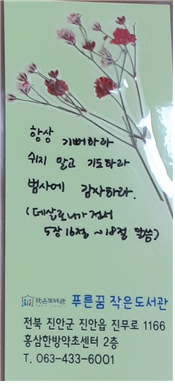 항상 기뻐하라
쉬지 말고 기도하라
범사에 감사하라.
(데살로니가전서
5장 16절~18절 말씀)
푸른꿈 작은도서관
전북 진안군 진안읍 진무로 1166
홍삼한방약초센터 2층
T. 063-433-6001